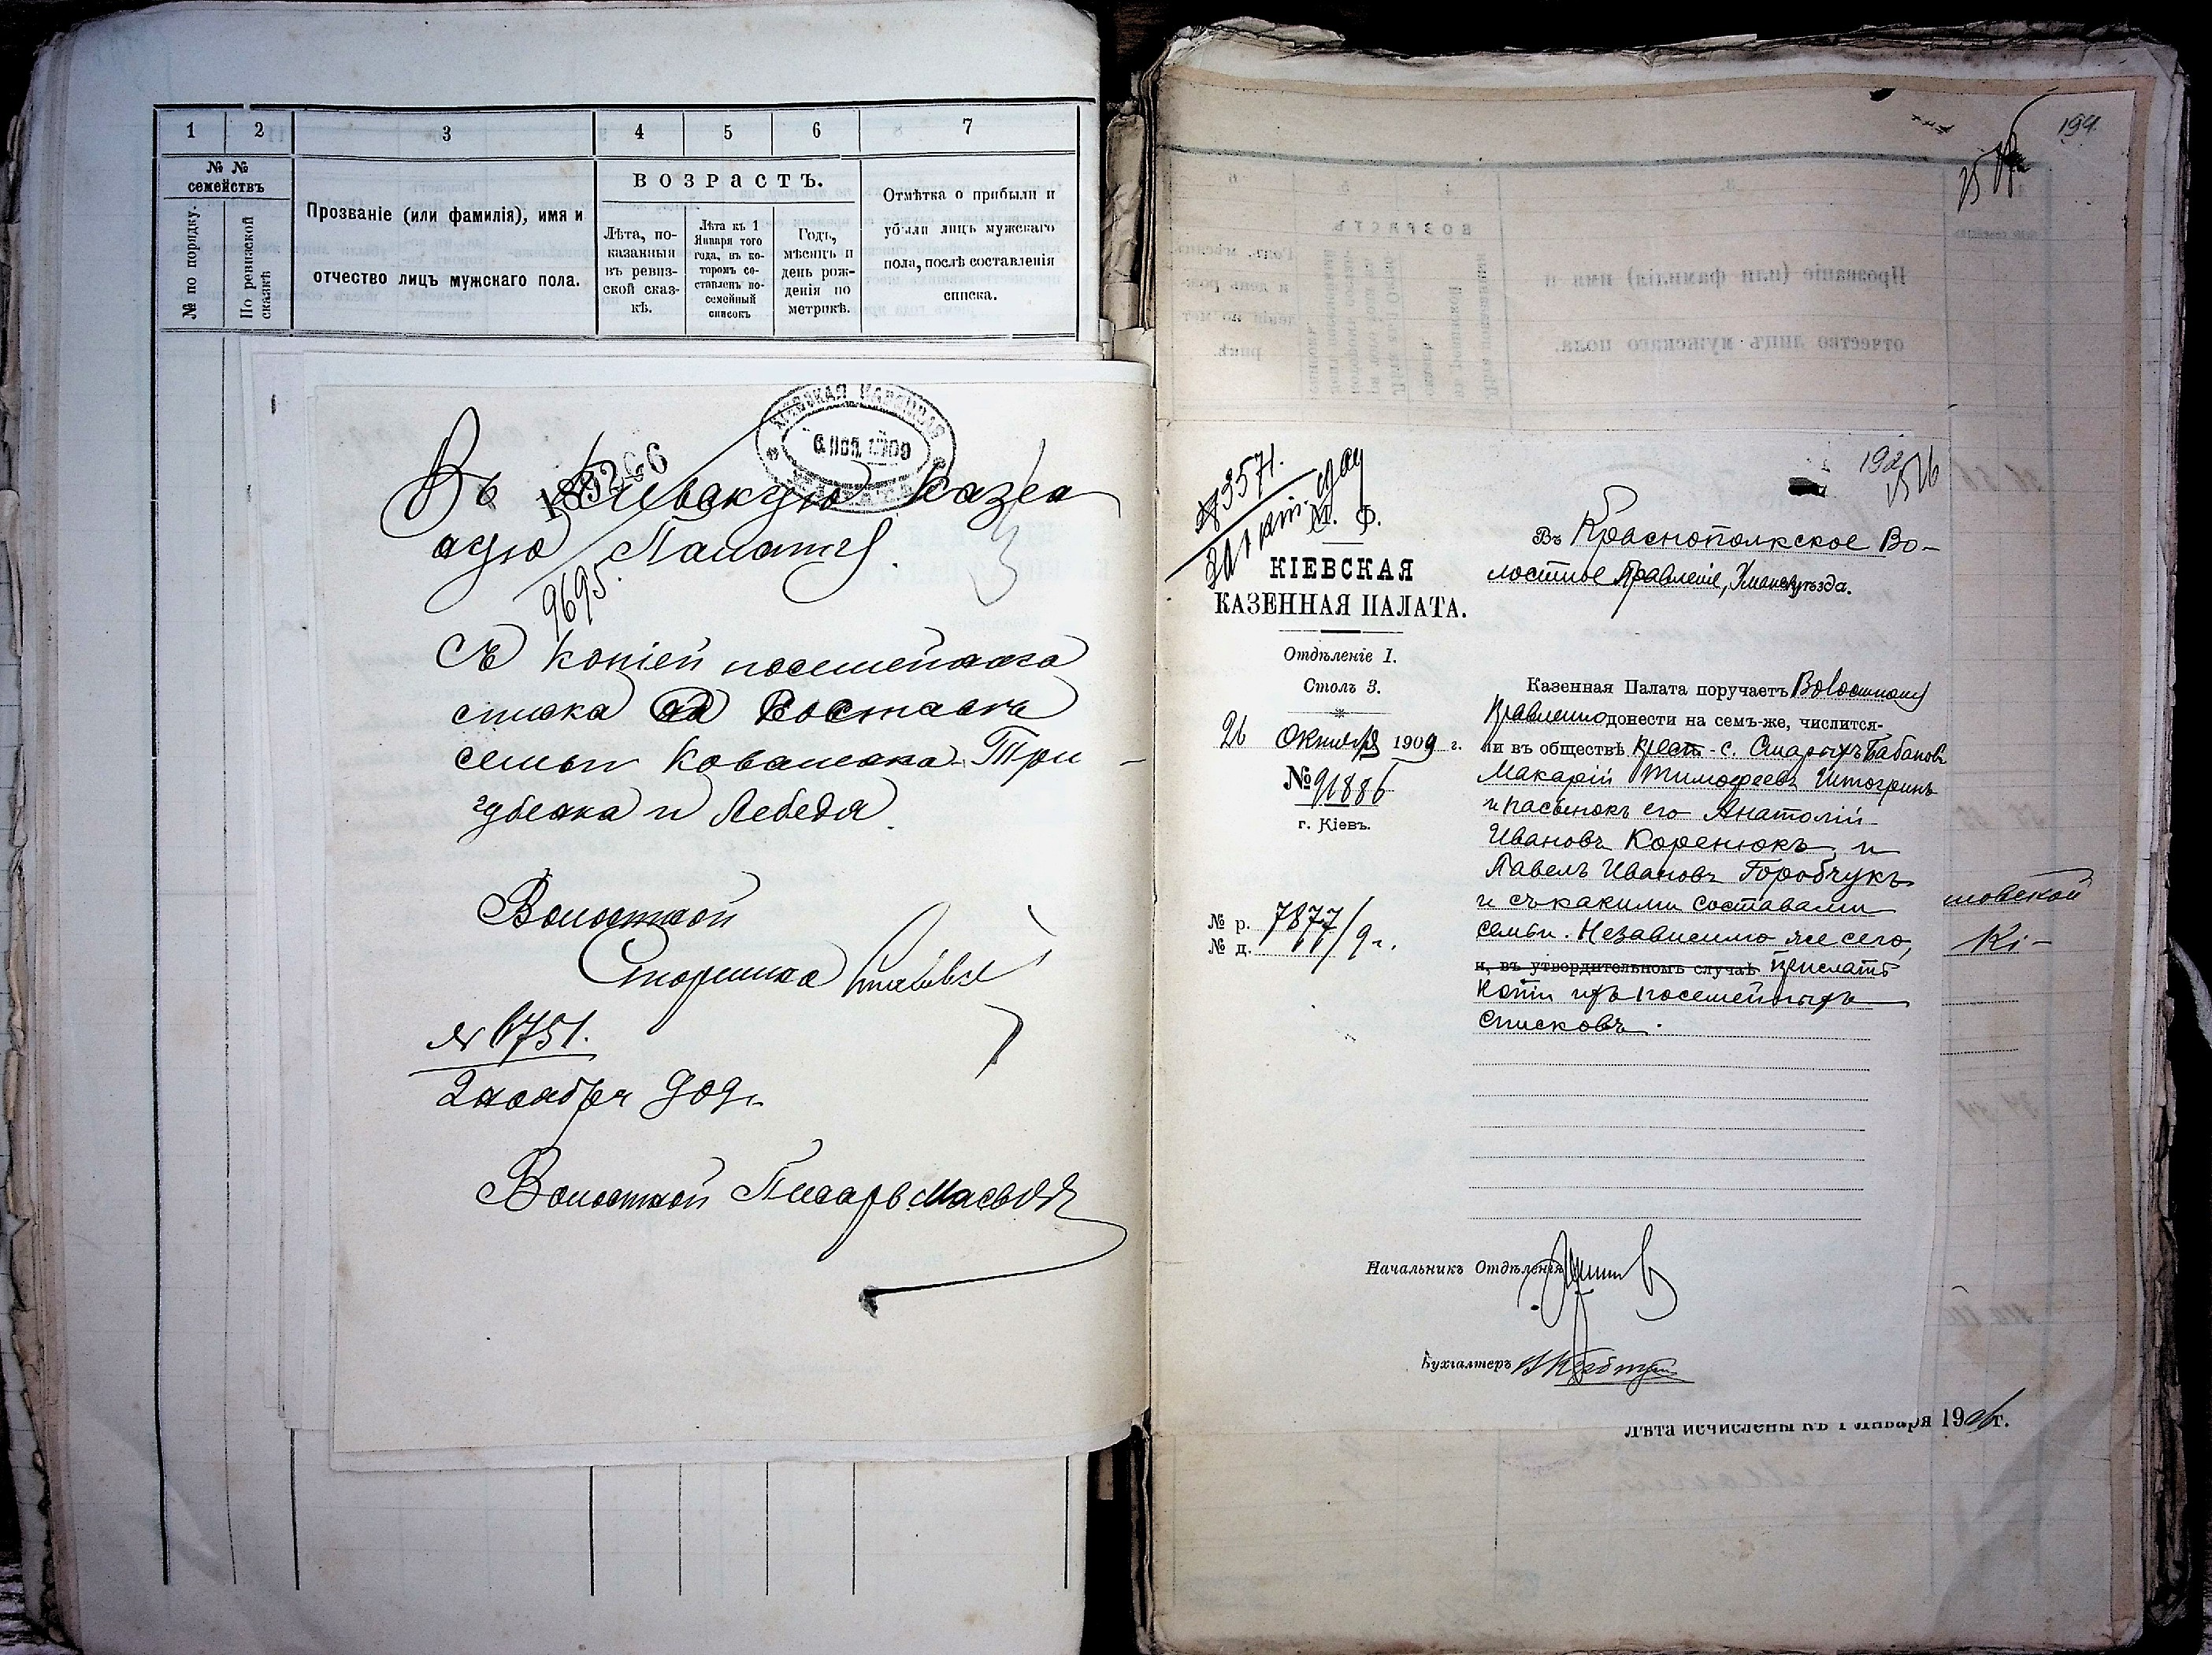 1 2 3 4 5 6 7
№ №
семействъ
№ по порядку.
По ревизской
сказкѣ
Прозваніе (или фамилія), имя и
отчество лицъ мужскаго пола.
ВОЗРАСТЪ.
Лѣта, по-
казанныя
въ ревиз-
ской сказ-
кѣ.
Лѣта къ 1
Января того
года, въ ко-
торомъ со-
ставленъ по-
семейный
списокъ
Годъ,
мѣсяцъ и
день рож-
денія по
метрикѣ.
Отмѣтка о прибыли и
убыли лицъ мужскаго
пола, послѣ составленія
списка.
КІЕВСКАЯ КАЗЕННАЯ
6 НОЯ 1909
ПАЛАТА
Въ Кіевскую Казен
ную Палату.
9695.
Съ копіей посемейнаго
списка о составѣ
семьи Коваленка Три-
губенка и Лебедя
Волостной
Старшина
№ 6751.
2 ноября 909 г.
Волостной Писарь
194
192
№ 3571.
М. Ф.
КІЕВСКАЯ
КАЗЕННАЯ ПАЛАТА.
Отдѣленіе I.
Столъ 3.
26 Октября 1909 г.
№ 91886
г. Кіевъ.
№ р. 7877/9 г.
№ д.
Въ Краснополкское Во-
лостное Правленіе, Уманск. уѣзда.
Казенная Палата поручаетъ Волостному
Правленію донести на семъ-же, числится-
ли въ обществѣ крест. с. Старыхъ Бабановъ
Макарій Тимофеевъ Штогринъ
и пасынокъ его Анатолій
Ивановъ Коренюкъ и
Павелъ Ивановъ Горобчукъ
и съ какими составами
семьи. Независимо же сего,
и, въ утвердительномъ случаѣ прислать
копіи ихъ посемейныхъ
списковъ.
Начальникъ Отдѣленія
Бухгалтеръ
Кі-
Лѣта исчислены къ 1 Января 1906 г.